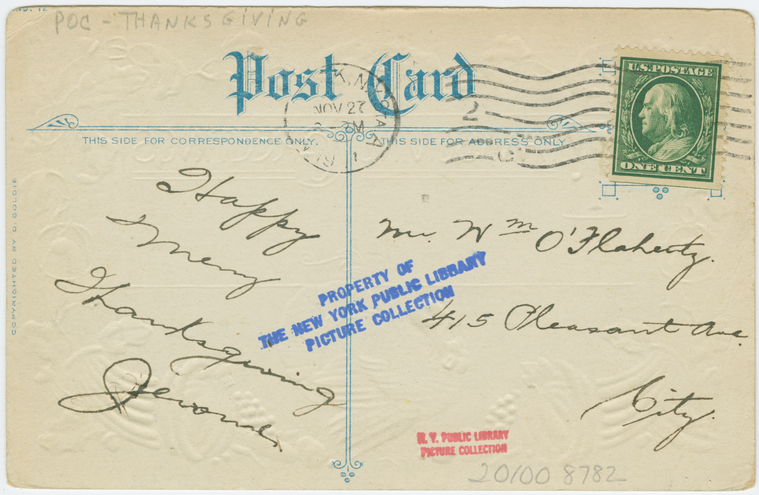 NO. 12
POC - THANKSGIVING
Post Card
NOV 27
U.S. POSTAGE
ONE CENT
THIS SIDE FOR CORRESPONDENCE ONLY.
THIS SIDE FOR ADDRESS ONLY
Happy
Merry
Thanksgiving
Mr. Wm O'Flaherty.
415 Pleasant Ave.
City.
PROPERTY OF
THE NEW YORK PUBLIC LIBRARY
PICTURE COLLECTION
COPYRIGHTED BY D. GOLDIE
N. Y. PUBLIC LIBRARY
PICTURE COLLECTION
20100 8782